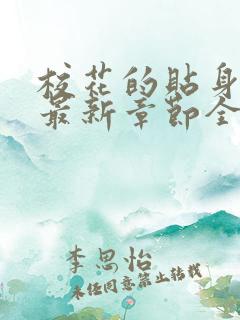 校花的貼身
最新章節全
李思怡
未经同意禁止转载